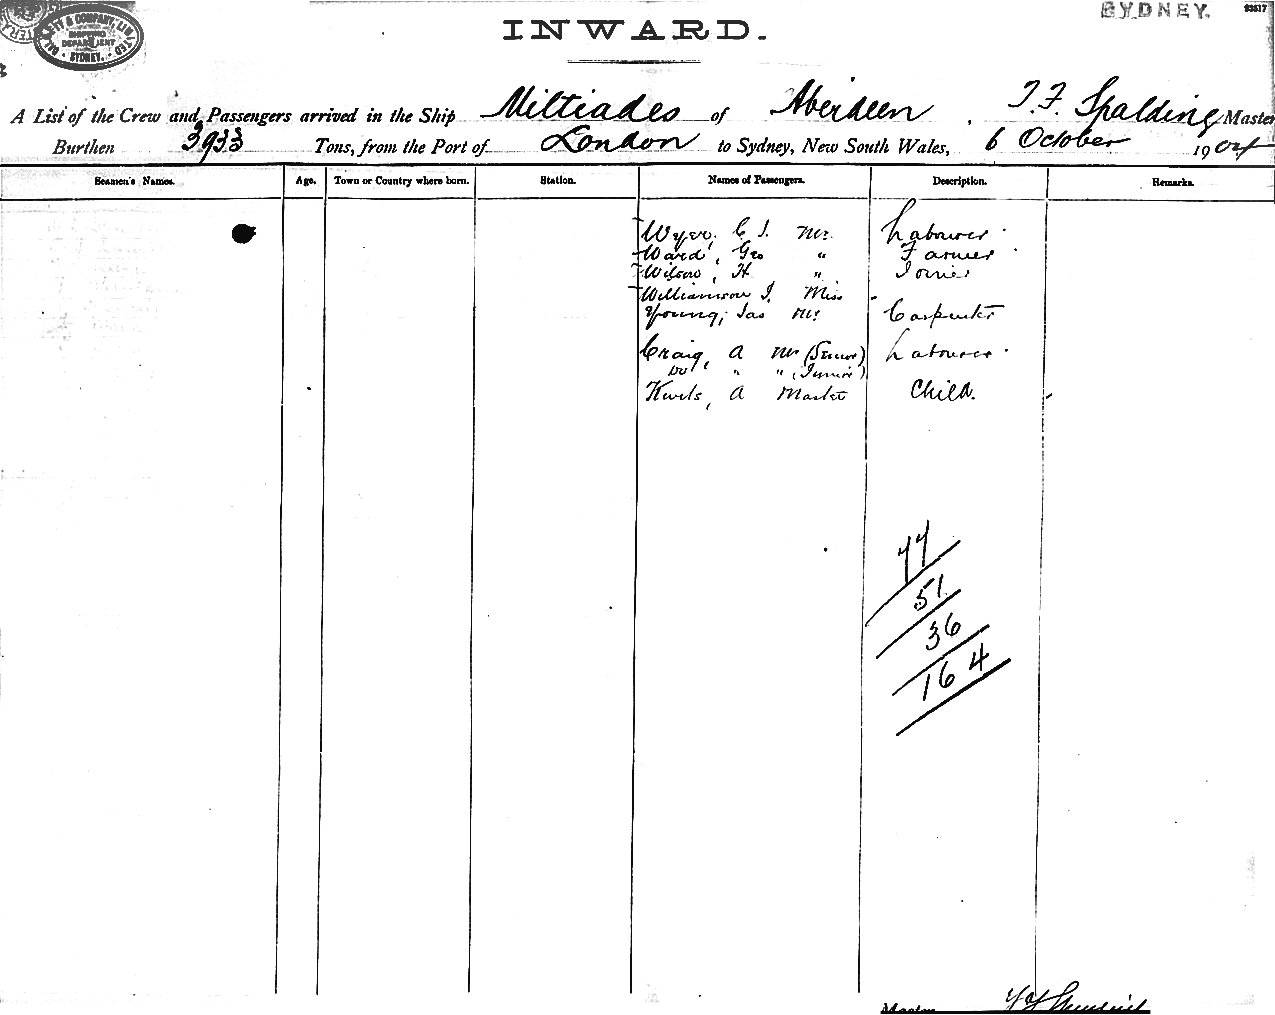 SYDNEY.
93617
& COMPANY, LIMITED
SHIPPING DEPARTMENT
SYDNEY.
INWARD.
A List of the Crew and Passengers arrived in the Ship Miltiades of Aberdeen, T. F. Spalding Master
Burthen 3933 Tons, from the Port of London to Sydney, New South Wales, 6 October 1904
Seamen's Names. Age. Town or Country where born. Station. Names of Passengers. Description. Remarks.
Wyer, C J. Mr. Labourer
Ward, Geo " Farmer
Wilson, H " Joiner
Williamson J. Miss
Young, Jas Mr Carpenter
Craig, A Mr (Senior) Labourer
Do " " (Junior)
A Master Child.
77
51
36
164
Master